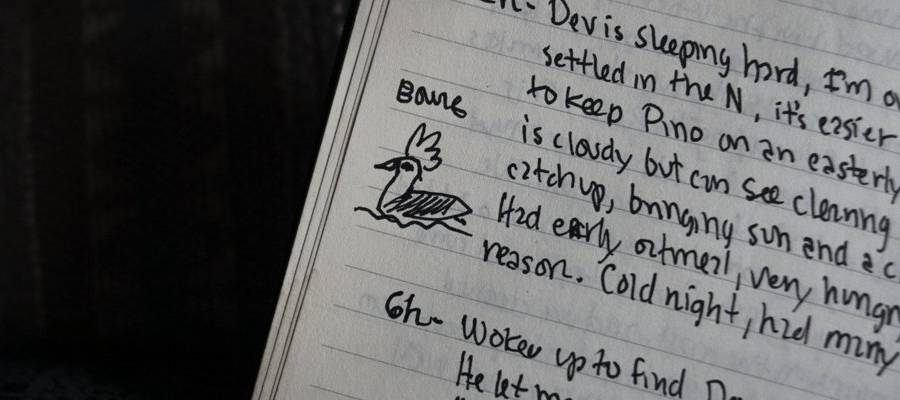 Dev is sleeping hard, I'm
settled in the N, it's easier
to keep Pino on an easterly
is cloudy but can see clearing
catch up, bringing sun and a
Had early oatmeal, very
reason. Cold night, had many
6h- Woken up to find
He let